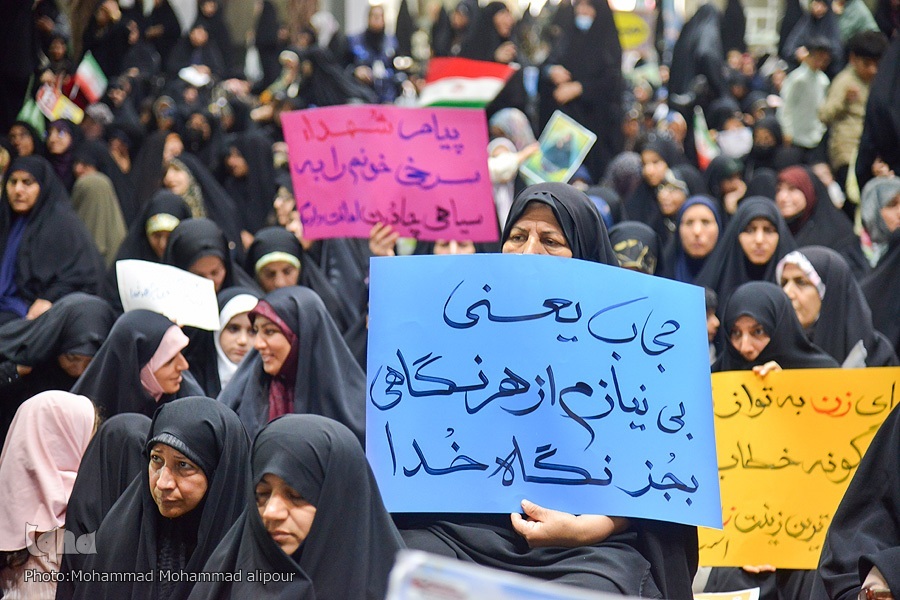 پیام شهدا
سرخی خونم را به
سیاهی چادرت امانت دادیم
حجاب یعنی
بی نیازم از هر نگاهی
بجز نگاه خُدا
ای زن به تو از
گونه خطاب
ترین زینت
است
iqna
Photo:Mohammad Mohammad alipour